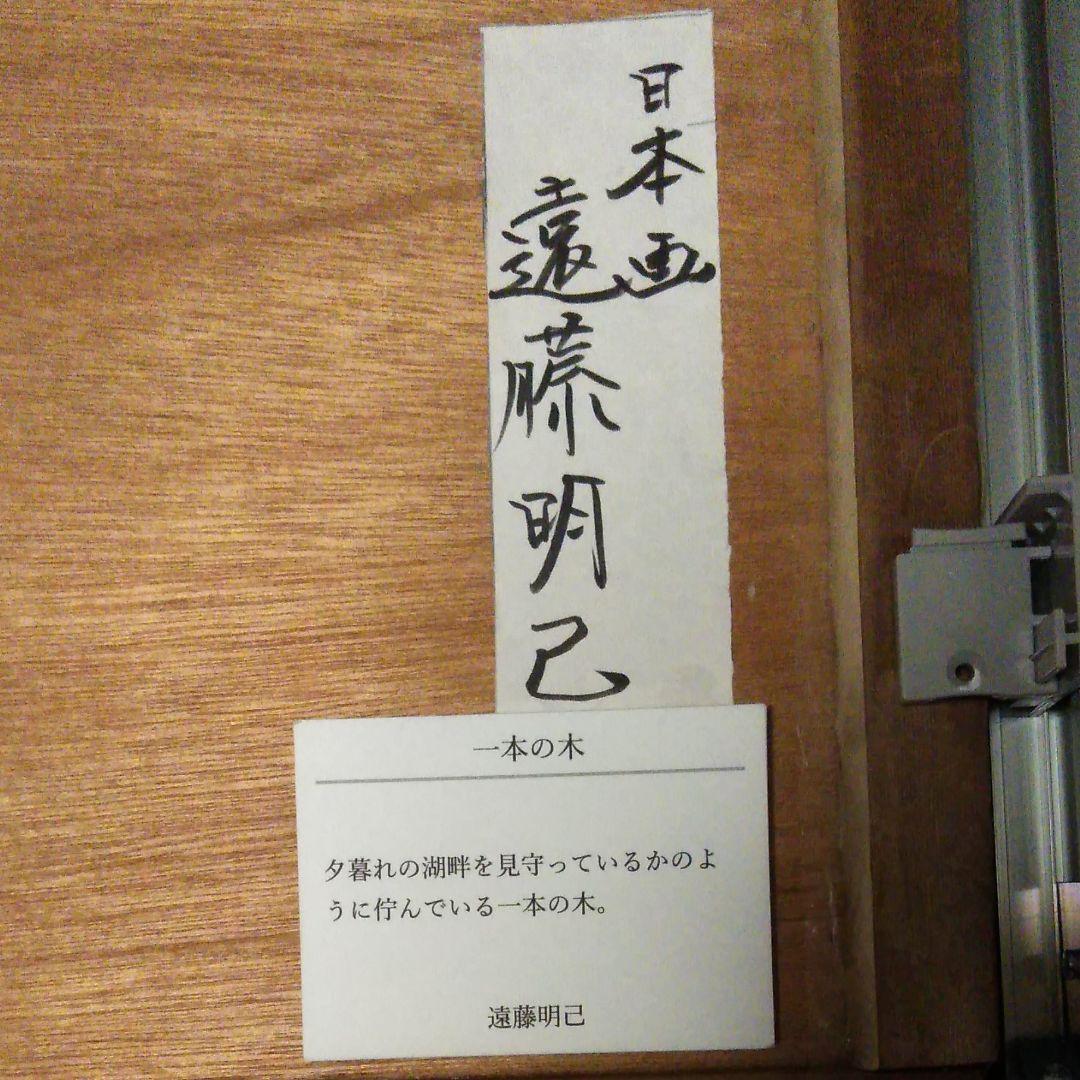 日本画
遠藤明己
一本の木
夕暮れの湖畔を見守っているかのよ
うに佇んでいる一本の木。
遠藤明己